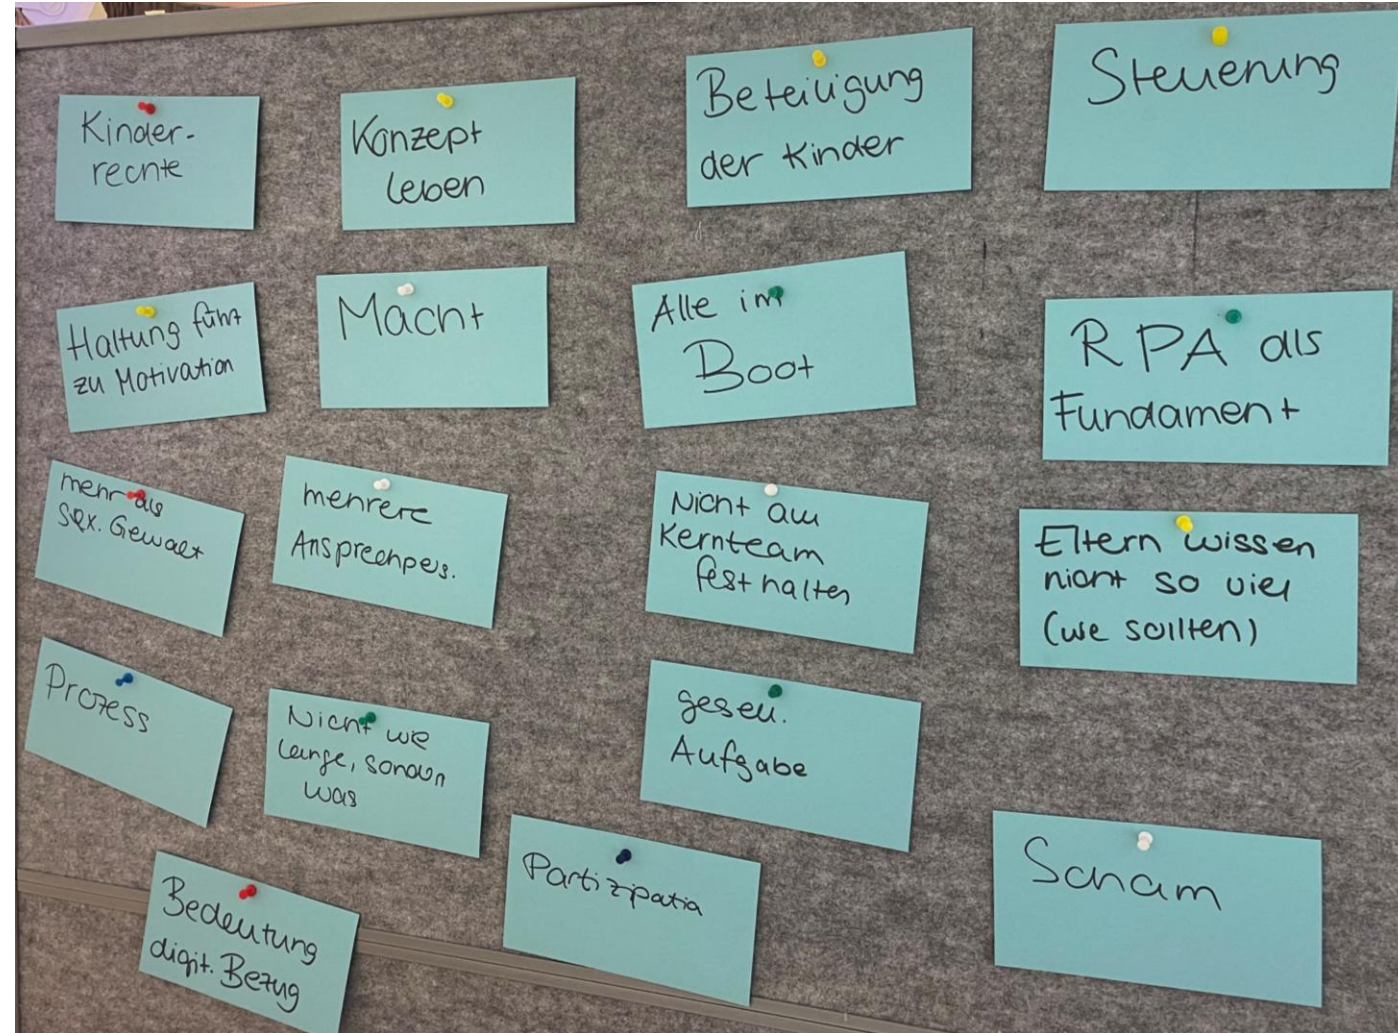 Kinder-
rechte
Konzept
leben
Beteiligung
der Kinder
Steuerung
Haltung führt
zu Motivation
Macht
Alle im
Boot
RPA als
Fundament
mehr als
sex. Gewalt
mehrere
Ansprechpers.
Nicht am
Kernteam
festhalten
Eltern wissen
nicht so viel
(wie sollten)
Prozess
Nicht wie
lange, sondern
was
gesell.
Aufgabe
Bedeutung
digit. Bezug
Partizipation
Scham